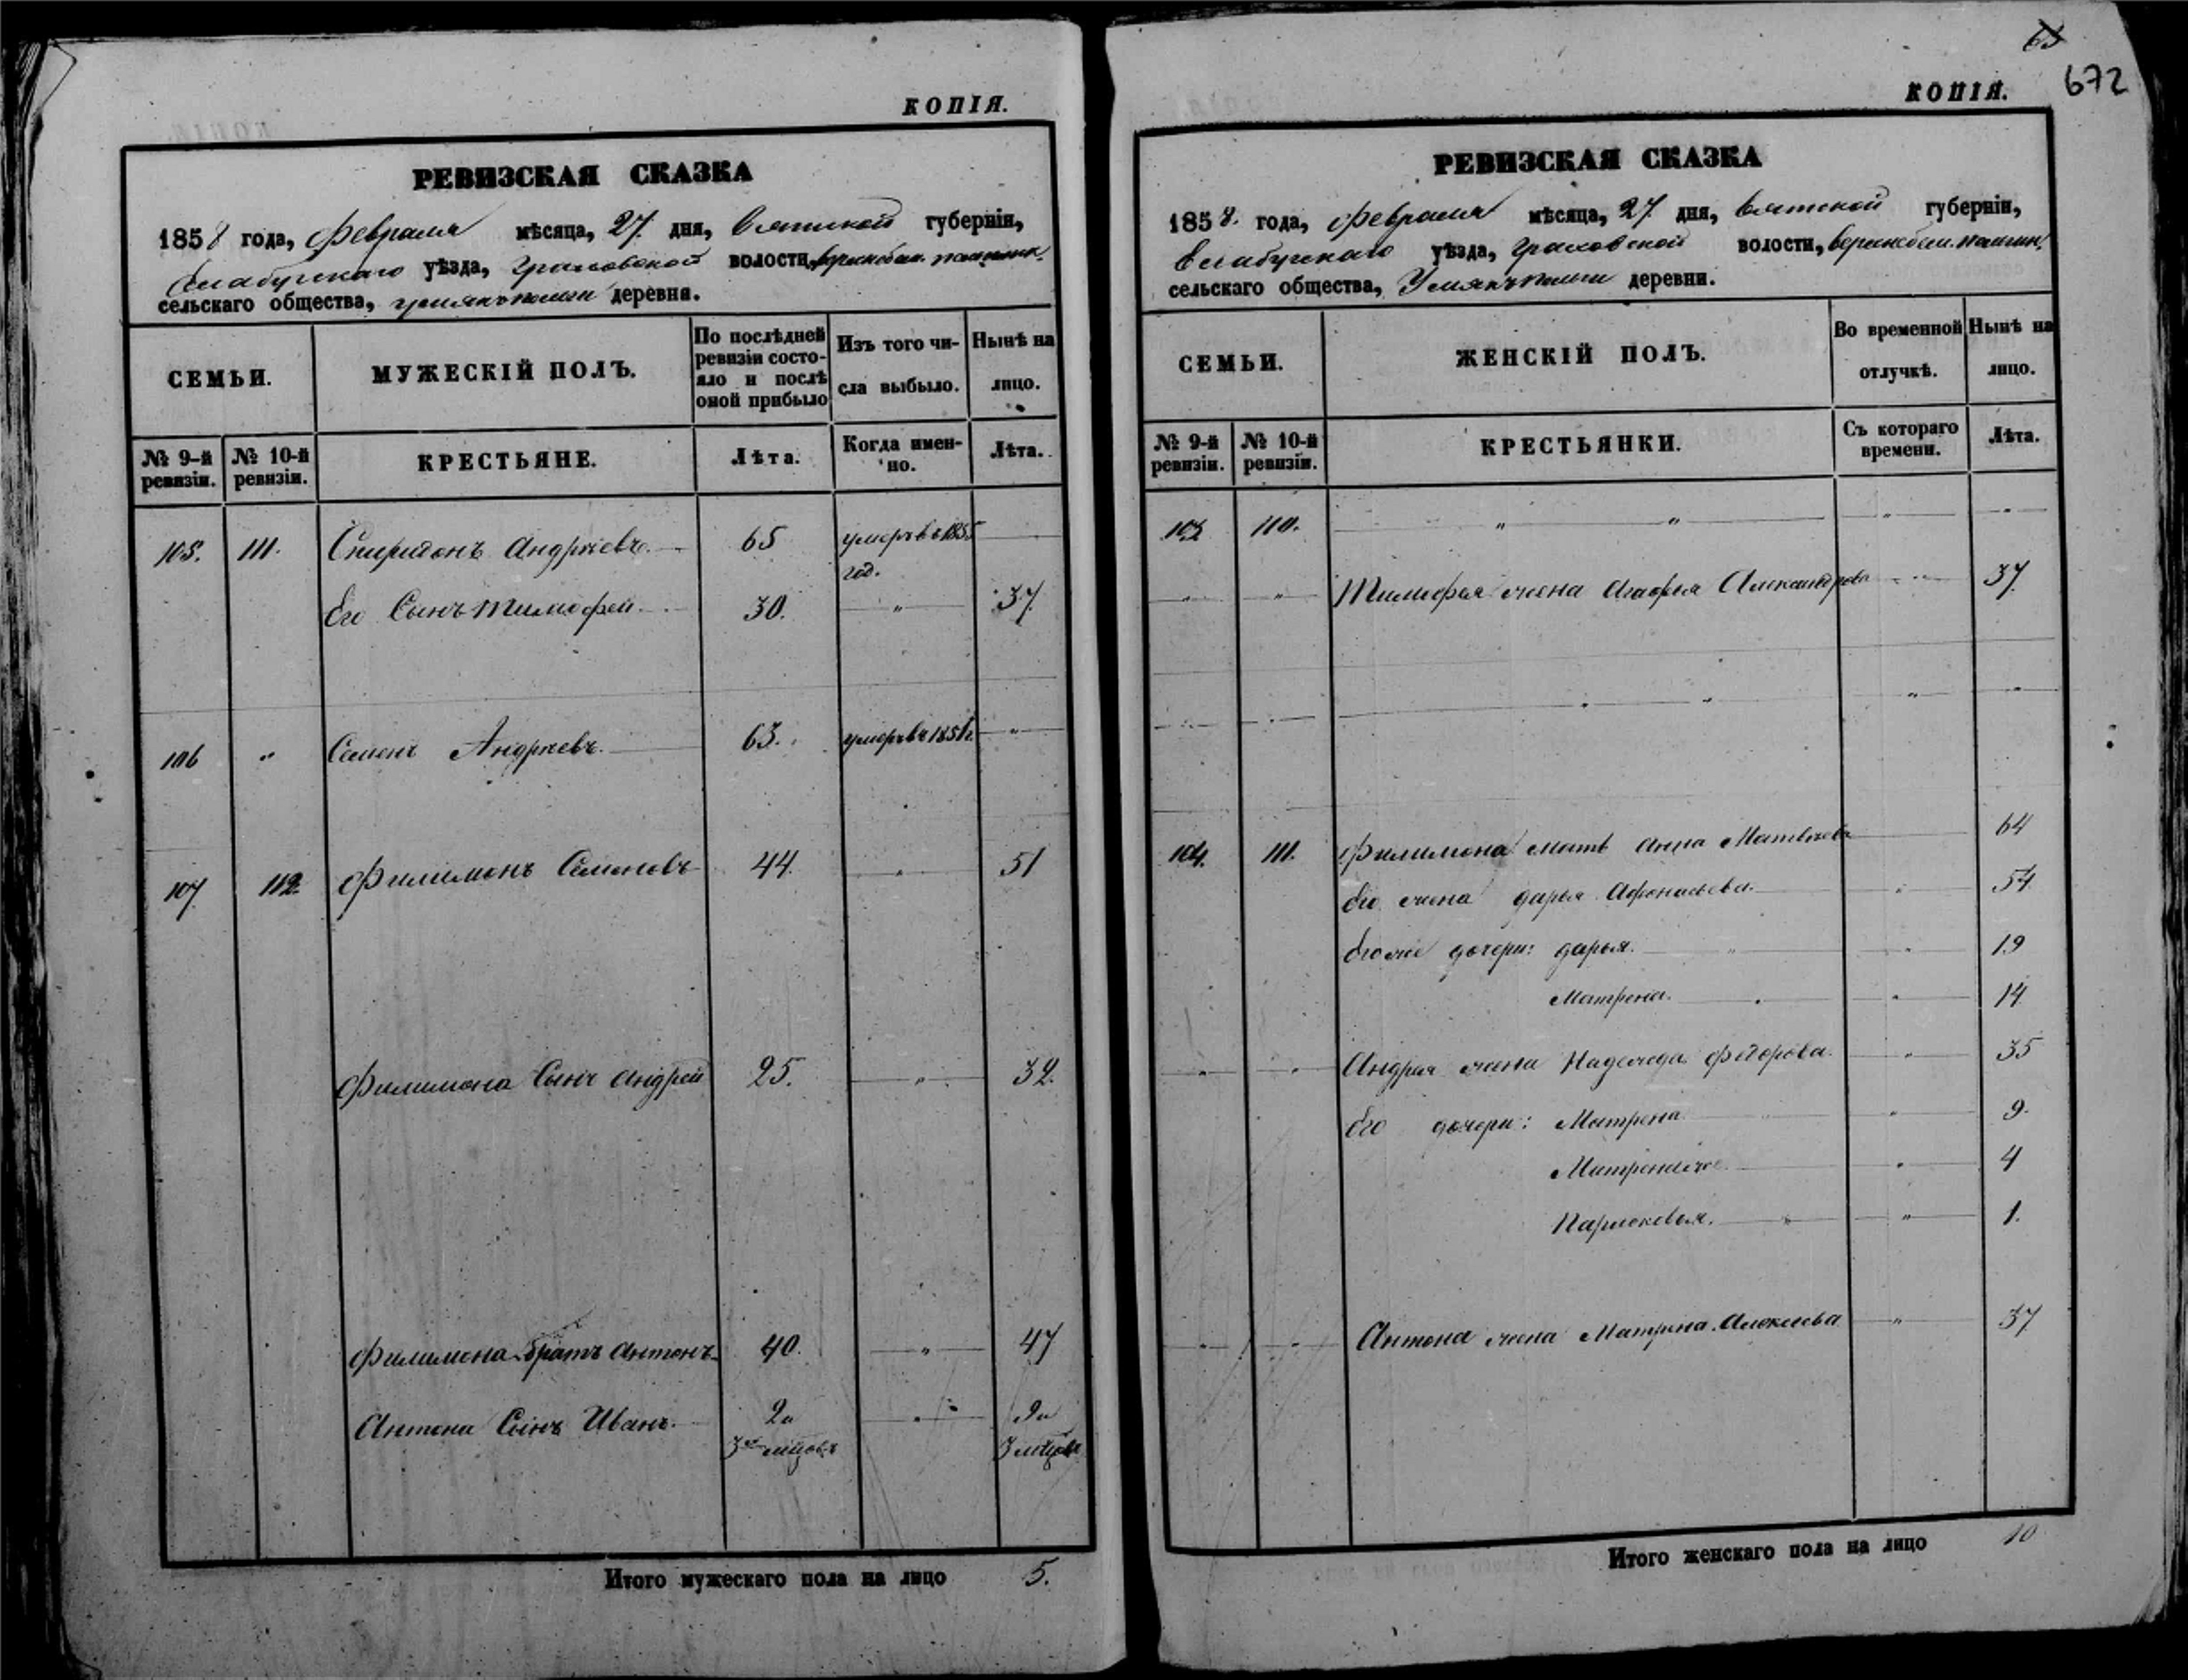 КОПІЯ.
РЕВИЗСКАЯ СКАЗКА
1858 года, Февраля мѣсяца, 27. дня, Вятской губерніи,
Елабугскаго уѣзда, Граховской волости,
сельскаго общества, деревни.
СЕМЬИ.
МУЖЕСКІЙ ПОЛЪ.
По послѣдней
ревизіи состо-
яло и послѣ
оной прибыло
Изъ того чи-
сла выбыло.
Нынѣ на
лицо.
№ 9-й
ревизіи.
№ 10-й
ревизіи.
КРЕСТЬЯНЕ.
Лѣта.
Когда имен-
но.
Лѣта.
105. 111. Спиридонъ Андрѣевъ. 65 умеръ въ 1855
год.
Его Сынъ Тимофей. 30. " 37.
106 " Семенъ Андрѣевъ. 63. умеръ въ "
107 112. Филимонъ Семеновъ 44. " 51
Филимона Сынъ Андрей 25. " 32.
Филимона братъ Антонъ 40. " 47
Антона Сынъ Иванъ. 2 и " 9 и
3 мѣсяцовъ
Итого мужескаго пола на лицо 5.
672
КОПІЯ.
РЕВИЗСКАЯ СКАЗКА
1858. года, Февраля мѣсяца, 27. дня, Вятской губерніи,
Елабугскаго уѣзда, Граховской волости,
сельскаго общества, деревни.
СЕМЬИ.
ЖЕНСКІЙ ПОЛЪ.
Во временной
отлучкѣ.
Нынѣ на
лицо.
№ 9-й
ревизіи.
№ 10-й
ревизіи.
КРЕСТЬЯНКИ.
Съ котораго
времени.
Лѣта.
110. " " " "
" " Тимофея жена Агафья Александрова " 37.
" " " "
104. 111. Филимона мать Анна Матвѣева 64
Его жена Дарья Афонасьева. " 54.
Его же дочери: Дарья. " " 19
Матрена. " 14
" " Андрея жена Надежда Федорова. " 35
Его дочери: Матрена " 9.
Матрена же " 4
Парасковья. " " 1.
" " Антона жена Матрена Алексѣева " 37
Итого женскаго пола на лицо 10